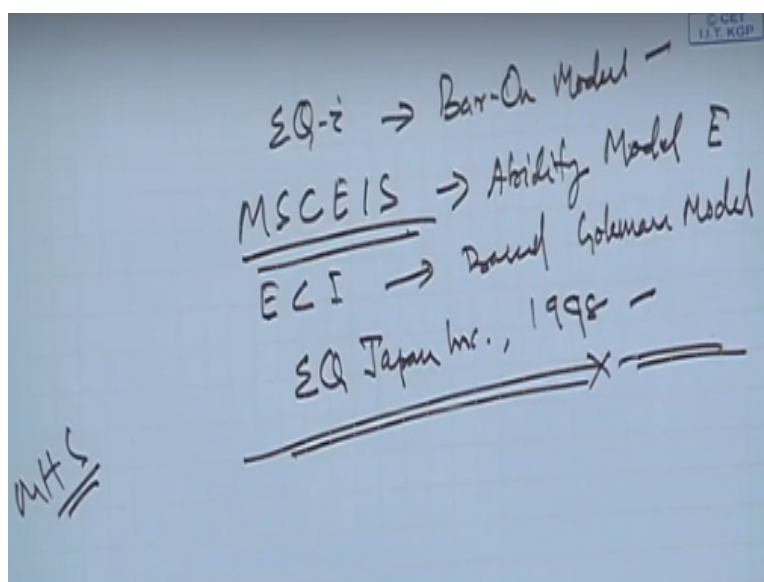 © CET
I.I.T. KGP
EQ-i → Bar-On Model -
MSCEIS → Ability Model E
ECI → Based Goleman Model
EQ Japan Inc., 1998 -
MHS